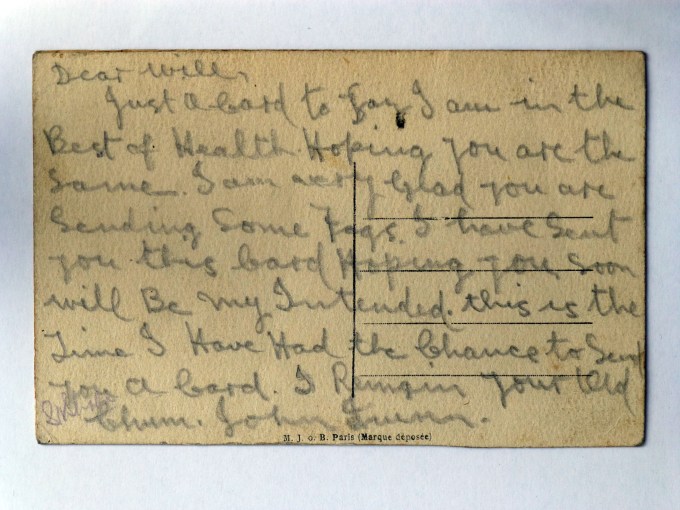 Dear Will,
Just a Card to Say I am in the
Best of Health. Hoping you are the
same. I am very Glad you are
Sending Some Fags. I have Sent
you this Card Hoping you Soon
will Be my Intended. this is the
Time I Have Had the Chance to Send
you a Card. I Remain your Old
Chum. John
M. J. o. B. Paris (Marque déposée)